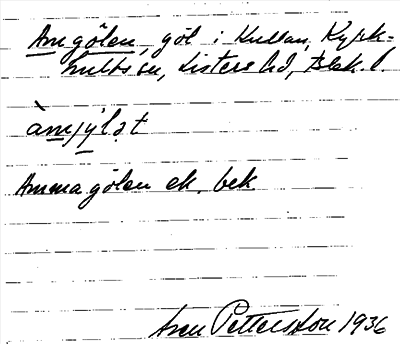 Amgölen, göl i Kullan, Kyrk=
hults sn, Listers hd, Blek. l.
àmjy̌lət
Ammagölen ek. bek
Sven Pettersson 1936